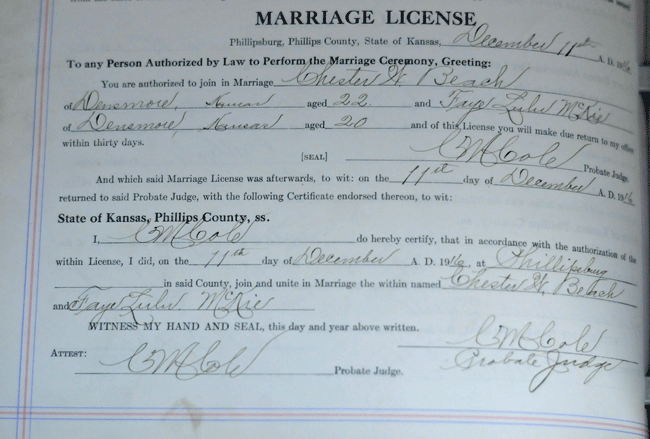 MARRIAGE LICENSE
Phillipsburg, Phillips County, State of Kansas, December 11th A. D. 1916
To any Person Authorized by Law to Perform the Marriage Ceremony, Greeting:
You are authorized to join in Marriage Chester W. Beach
of Densmore, Kansas aged 22 and Faye Lulu McKie
of Densmore, Kansas aged 20 and of this License you will make due return to my office
within thirty days.
[SEAL] C M Cole Probate Judge.
And which said Marriage License was afterwards, to wit: on the 11th day of December A. D. 1916
returned to said Probate Judge, with the following Certificate endorsed thereon, to wit:
State of Kansas, Phillips County, ss.
I, C M Cole do hereby certify, that in accordance with the authorization of the
within License, I did, on the 11th day of December A. D. 1916, at Phillipsburg
in said County, join and unite in Marriage the within named Chester W. Beach
and Faye Lulu McKie
WITNESS MY HAND AND SEAL, this day and year above written.
C M Cole
Probate Judge
ATTEST: C M Cole Probate Judge.